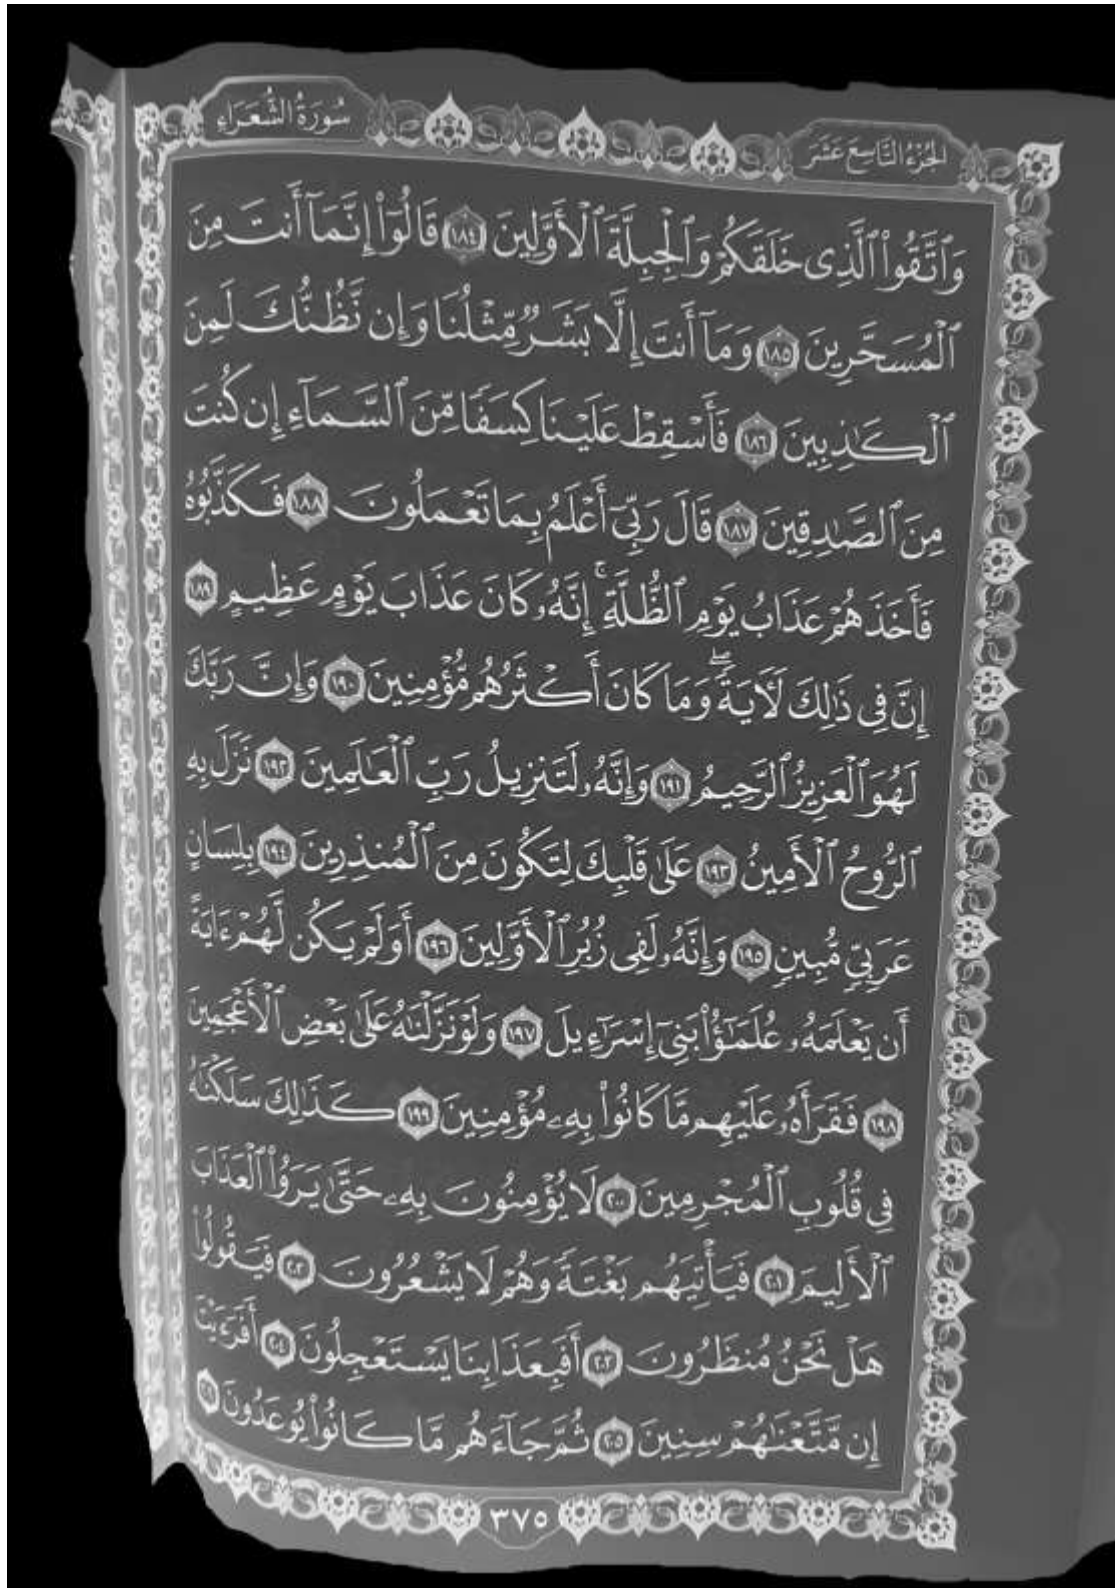 الجُزْءُ التَّاسِعَ عَشَرَ
سُورَةُ الشُّعَرَاءِ
وَٱتَّقُوا۟ ٱلَّذِى خَلَقَكُمْ وَٱلْجِبِلَّةَ ٱلْأَوَّلِينَ ١٨٤ قَالُوٓا۟ إِنَّمَآ أَنتَ مِنَ
ٱلْمُسَحَّرِينَ ١٨٥ وَمَآ أَنتَ إِلَّا بَشَرٌ مِّثْلُنَا وَإِن نَّظُنُّكَ لَمِنَ
ٱلْكَٰذِبِينَ ١٨٦ فَأَسْقِطْ عَلَيْنَا كِسَفًا مِّنَ ٱلسَّمَآءِ إِن كُنتَ
مِنَ ٱلصَّٰدِقِينَ ١٨٧ قَالَ رَبِّىٓ أَعْلَمُ بِمَا تَعْمَلُونَ ١٨٨ فَكَذَّبُوهُ
فَأَخَذَهُمْ عَذَابُ يَوْمِ ٱلظُّلَّةِ ۚ إِنَّهُۥ كَانَ عَذَابَ يَوْمٍ عَظِيمٍ ١٨٩
إِنَّ فِى ذَٰلِكَ لَءَايَةً ۖ وَمَا كَانَ أَكْثَرُهُم مُّؤْمِنِينَ ١٩٠ وَإِنَّ رَبَّكَ
لَهُوَ ٱلْعَزِيزُ ٱلرَّحِيمُ ١٩١ وَإِنَّهُۥ لَتَنزِيلُ رَبِّ ٱلْعَٰلَمِينَ ١٩٢ نَزَلَ بِهِ
ٱلرُّوحُ ٱلْأَمِينُ ١٩٣ عَلَىٰ قَلْبِكَ لِتَكُونَ مِنَ ٱلْمُنذِرِينَ ١٩٤ بِلِسَانٍ
عَرَبِىٍّ مُّبِينٍ ١٩٥ وَإِنَّهُۥ لَفِى زُبُرِ ٱلْأَوَّلِينَ ١٩٦ أَوَلَمْ يَكُن لَّهُمْ ءَايَةً
أَن يَعْلَمَهُۥ عُلَمَٰٓؤُا۟ بَنِىٓ إِسْرَٰٓءِيلَ ١٩٧ وَلَوْ نَزَّلْنَٰهُ عَلَىٰ بَعْضِ ٱلْأَعْجَمِينَ
١٩٨ فَقَرَأَهُۥ عَلَيْهِم مَّا كَانُوا۟ بِهِۦ مُؤْمِنِينَ ١٩٩ كَذَٰلِكَ سَلَكْنَٰهُ
فِى قُلُوبِ ٱلْمُجْرِمِينَ ٢٠٠ لَا يُؤْمِنُونَ بِهِۦ حَتَّىٰ يَرَوُا۟ ٱلْعَذَابَ
ٱلْأَلِيمَ ٢٠١ فَيَأْتِيَهُم بَغْتَةً وَهُمْ لَا يَشْعُرُونَ ٢٠٢ فَيَقُولُوا۟
هَلْ نَحْنُ مُنظَرُونَ ٢٠٣ أَفَبِعَذَابِنَا يَسْتَعْجِلُونَ ٢٠٤ أَفَرَءَيْتَ
إِن مَّتَّعْنَٰهُمْ سِنِينَ ٢٠٥ ثُمَّ جَآءَهُم مَّا كَانُوا۟ يُوعَدُونَ ٢٠٦
٣٧٥